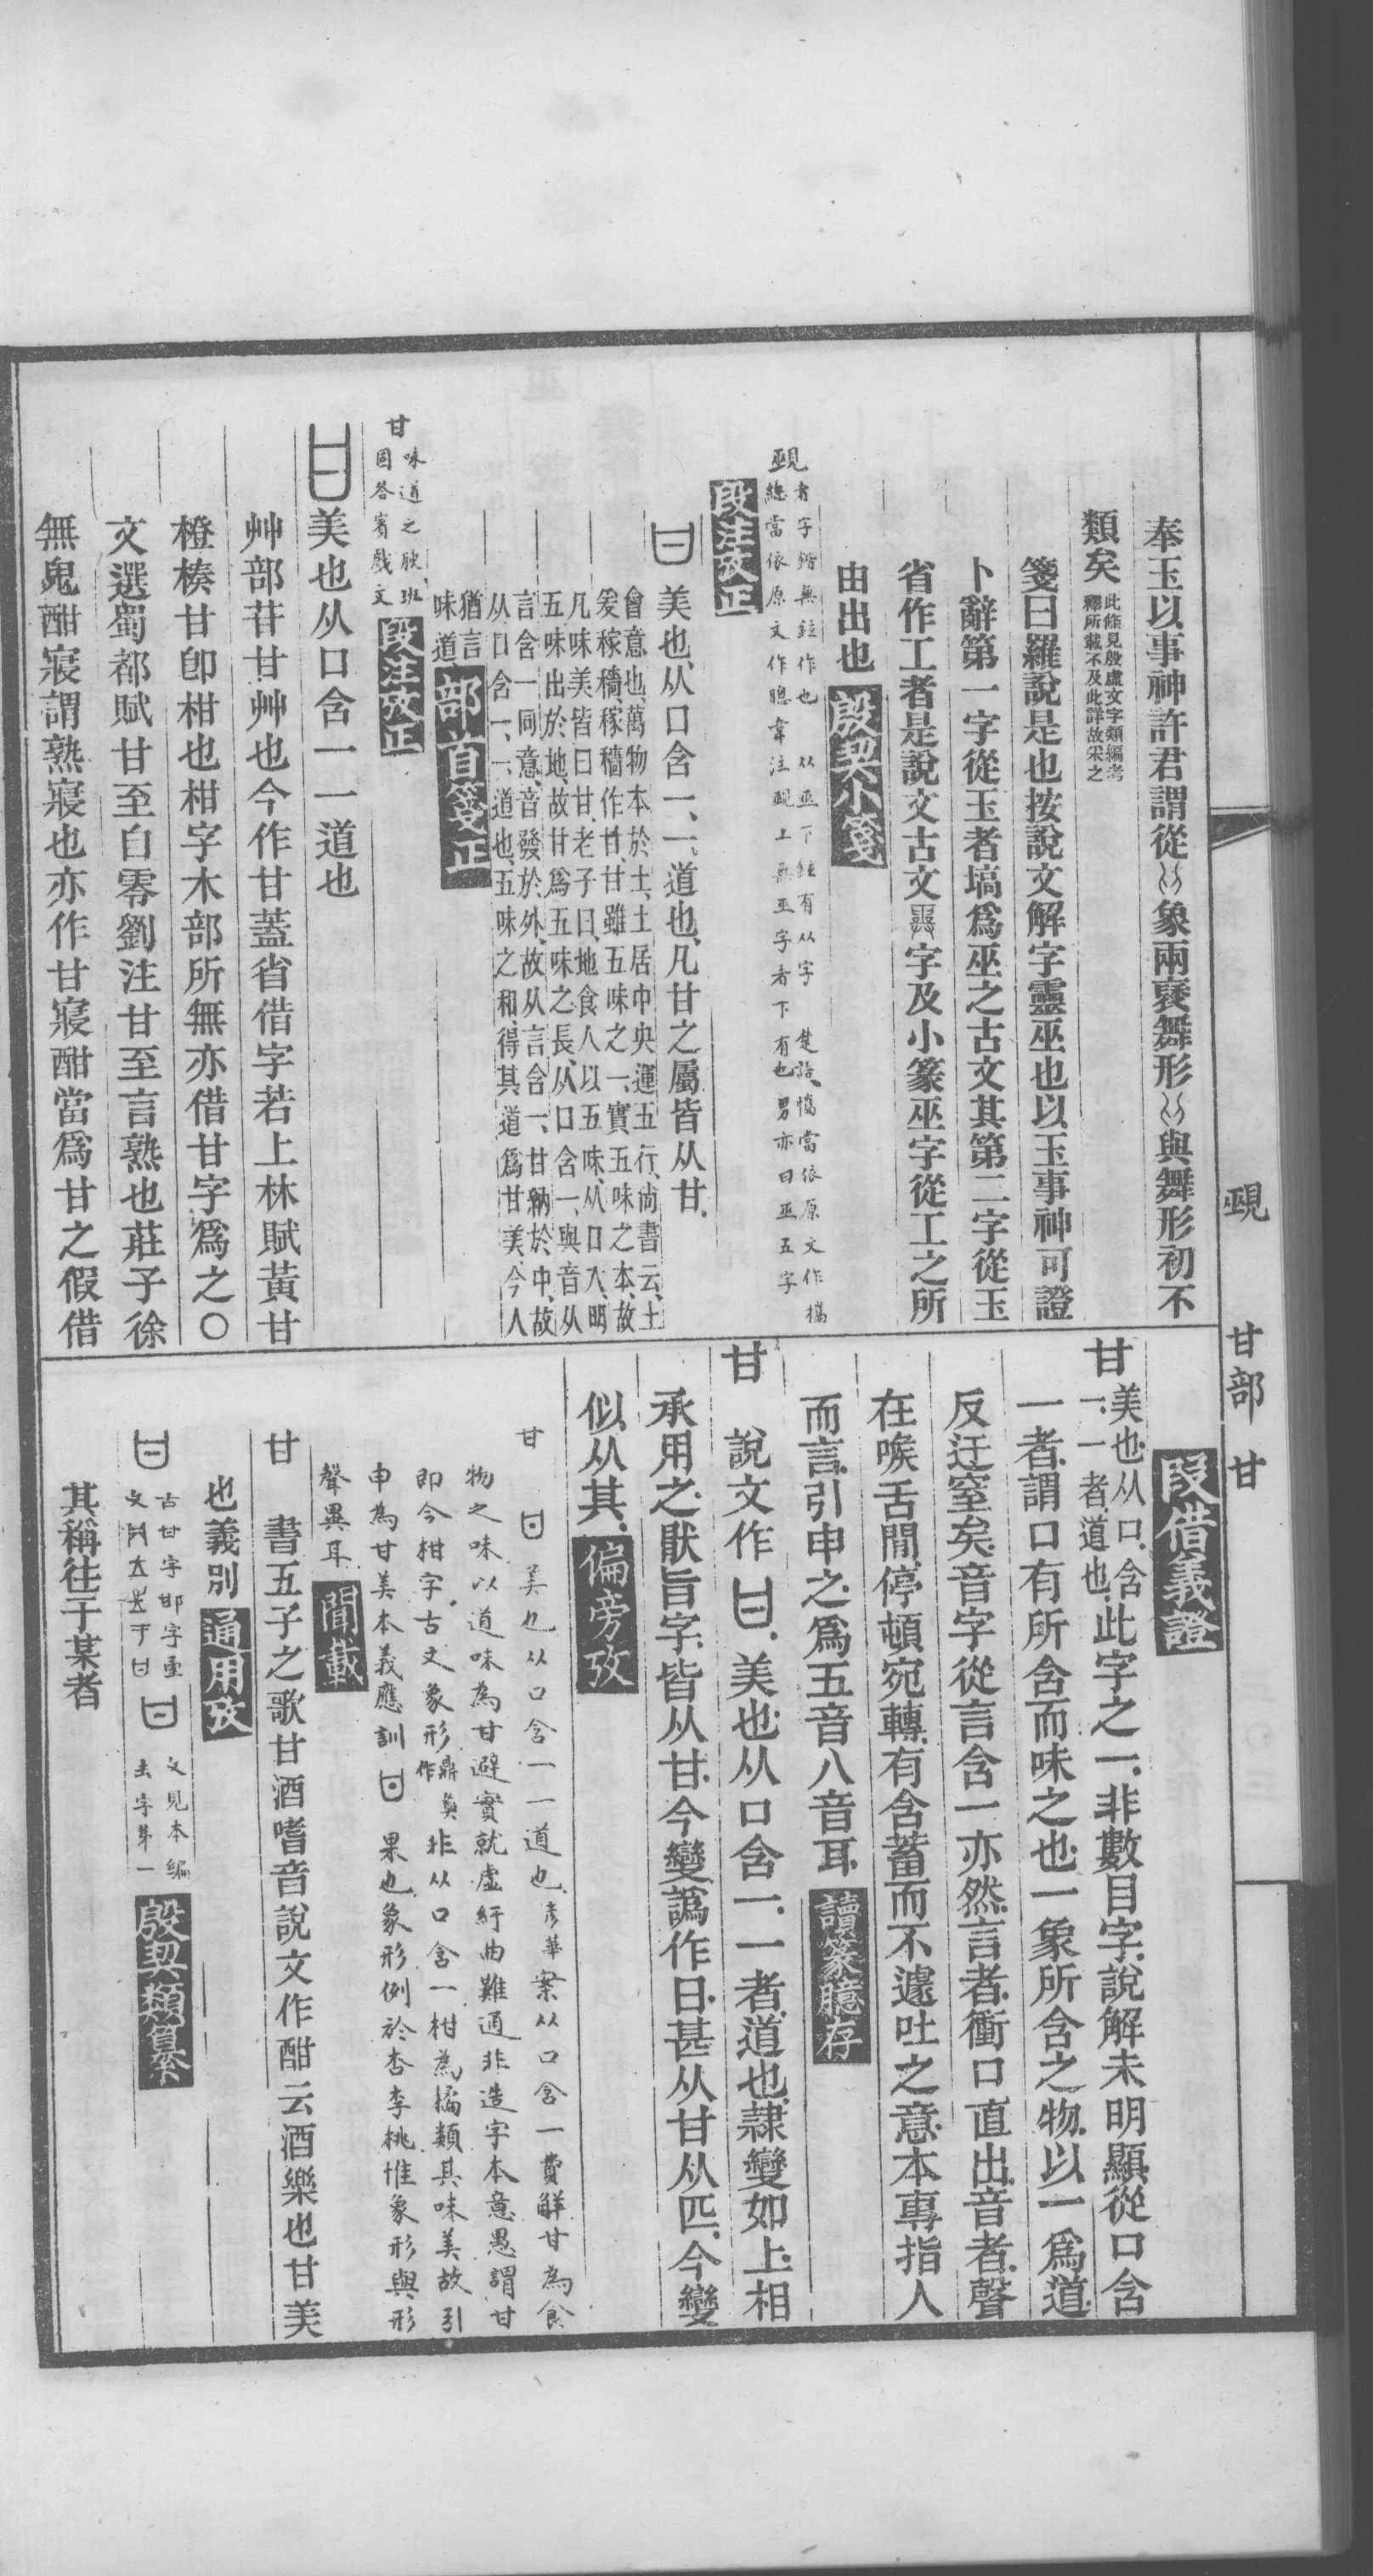 覡
甘部　甘
奉玉以事神許君謂從象兩褎舞形與舞形初不
類矣此條見殷虛文字類編考釋所載不及此詳故采之
箋曰羅說是也按說文解字靈巫也以玉事神可證
卜辭第一字從玉者塙爲巫之古文其第二字從玉
省作工者是說文古文字及小篆巫字從工之所
由出也殷契小箋
覡
者字鍇無鉉作也　从巫下鉉有从字　楚語、㩦當依原文作攜
總當依原文作聰韋注覡上無巫字者下有也男亦曰巫五字
段注攷正
美也、从口含一、一、道也、凡甘之屬皆从甘、
會意也、萬物本於土、土居中央運五行、尚書云、土
爰稼穡、稼穡作甘、甘雖五味之一、實五味之本、故
凡味美皆曰甘、老子曰、地食人以五味、从口入、明
五味出於地、故甘爲五味之長、从口含一、與音从
言含一同意、音發於外、故从言含一、甘納於中、故
从口含一、一、道也、五味之和、得其道爲甘美、今人
猶言
味道、部首箋正
甘
味道之腴、班
固答賓戲文
段注攷正
美也从口含一一道也
艸部苷甘艸也今作甘蓋省借字若上林賦黃甘
橙楱甘卽柑也柑字木部所無亦借甘字爲之〇
文選蜀都賦甘至自零劉注甘至言熟也莊子徐
無鬼酣寢謂熟寢也亦作甘寢酣當爲甘之假借
段借義證
甘
美也、从口、含
一、一者道也、
此字之一、非數目字、說解未明顯、從口含
一者、謂口有所含而味之也、一象所含之物、以一爲道、
反迂窒矣、音字從言含一亦然、言者、衝口直出、音者、聲
在喉舌閒、停頓宛轉、有含蓄而不遽吐之意、本專指人
而言、引申之、爲五音八音耳、讀篆臆存
甘　說文作、美也、从口含一、一者、道也、隸變如上、相
承用之、猒旨字、皆从甘、今變譌作日、甚从甘从匹、今變
似、从其、偏旁攷
甘　美也从口含一一道也、彥華案从口含一費解甘為食
物之味以道味為甘避實就虛紆曲難通非造字本意愚謂甘
即今柑字、古文象形作鼎奠非从口含一柑為橘類其味美故引
申為甘美本義應訓果也象形例於杏李桃惟象形與形
聲異耳聞載
甘　書五子之歌甘酒嗜音說文作酣云酒樂也甘美
也義別通用攷
古甘字邯字重
文見本編
去字第一
殷契類纂
其稱往于某者